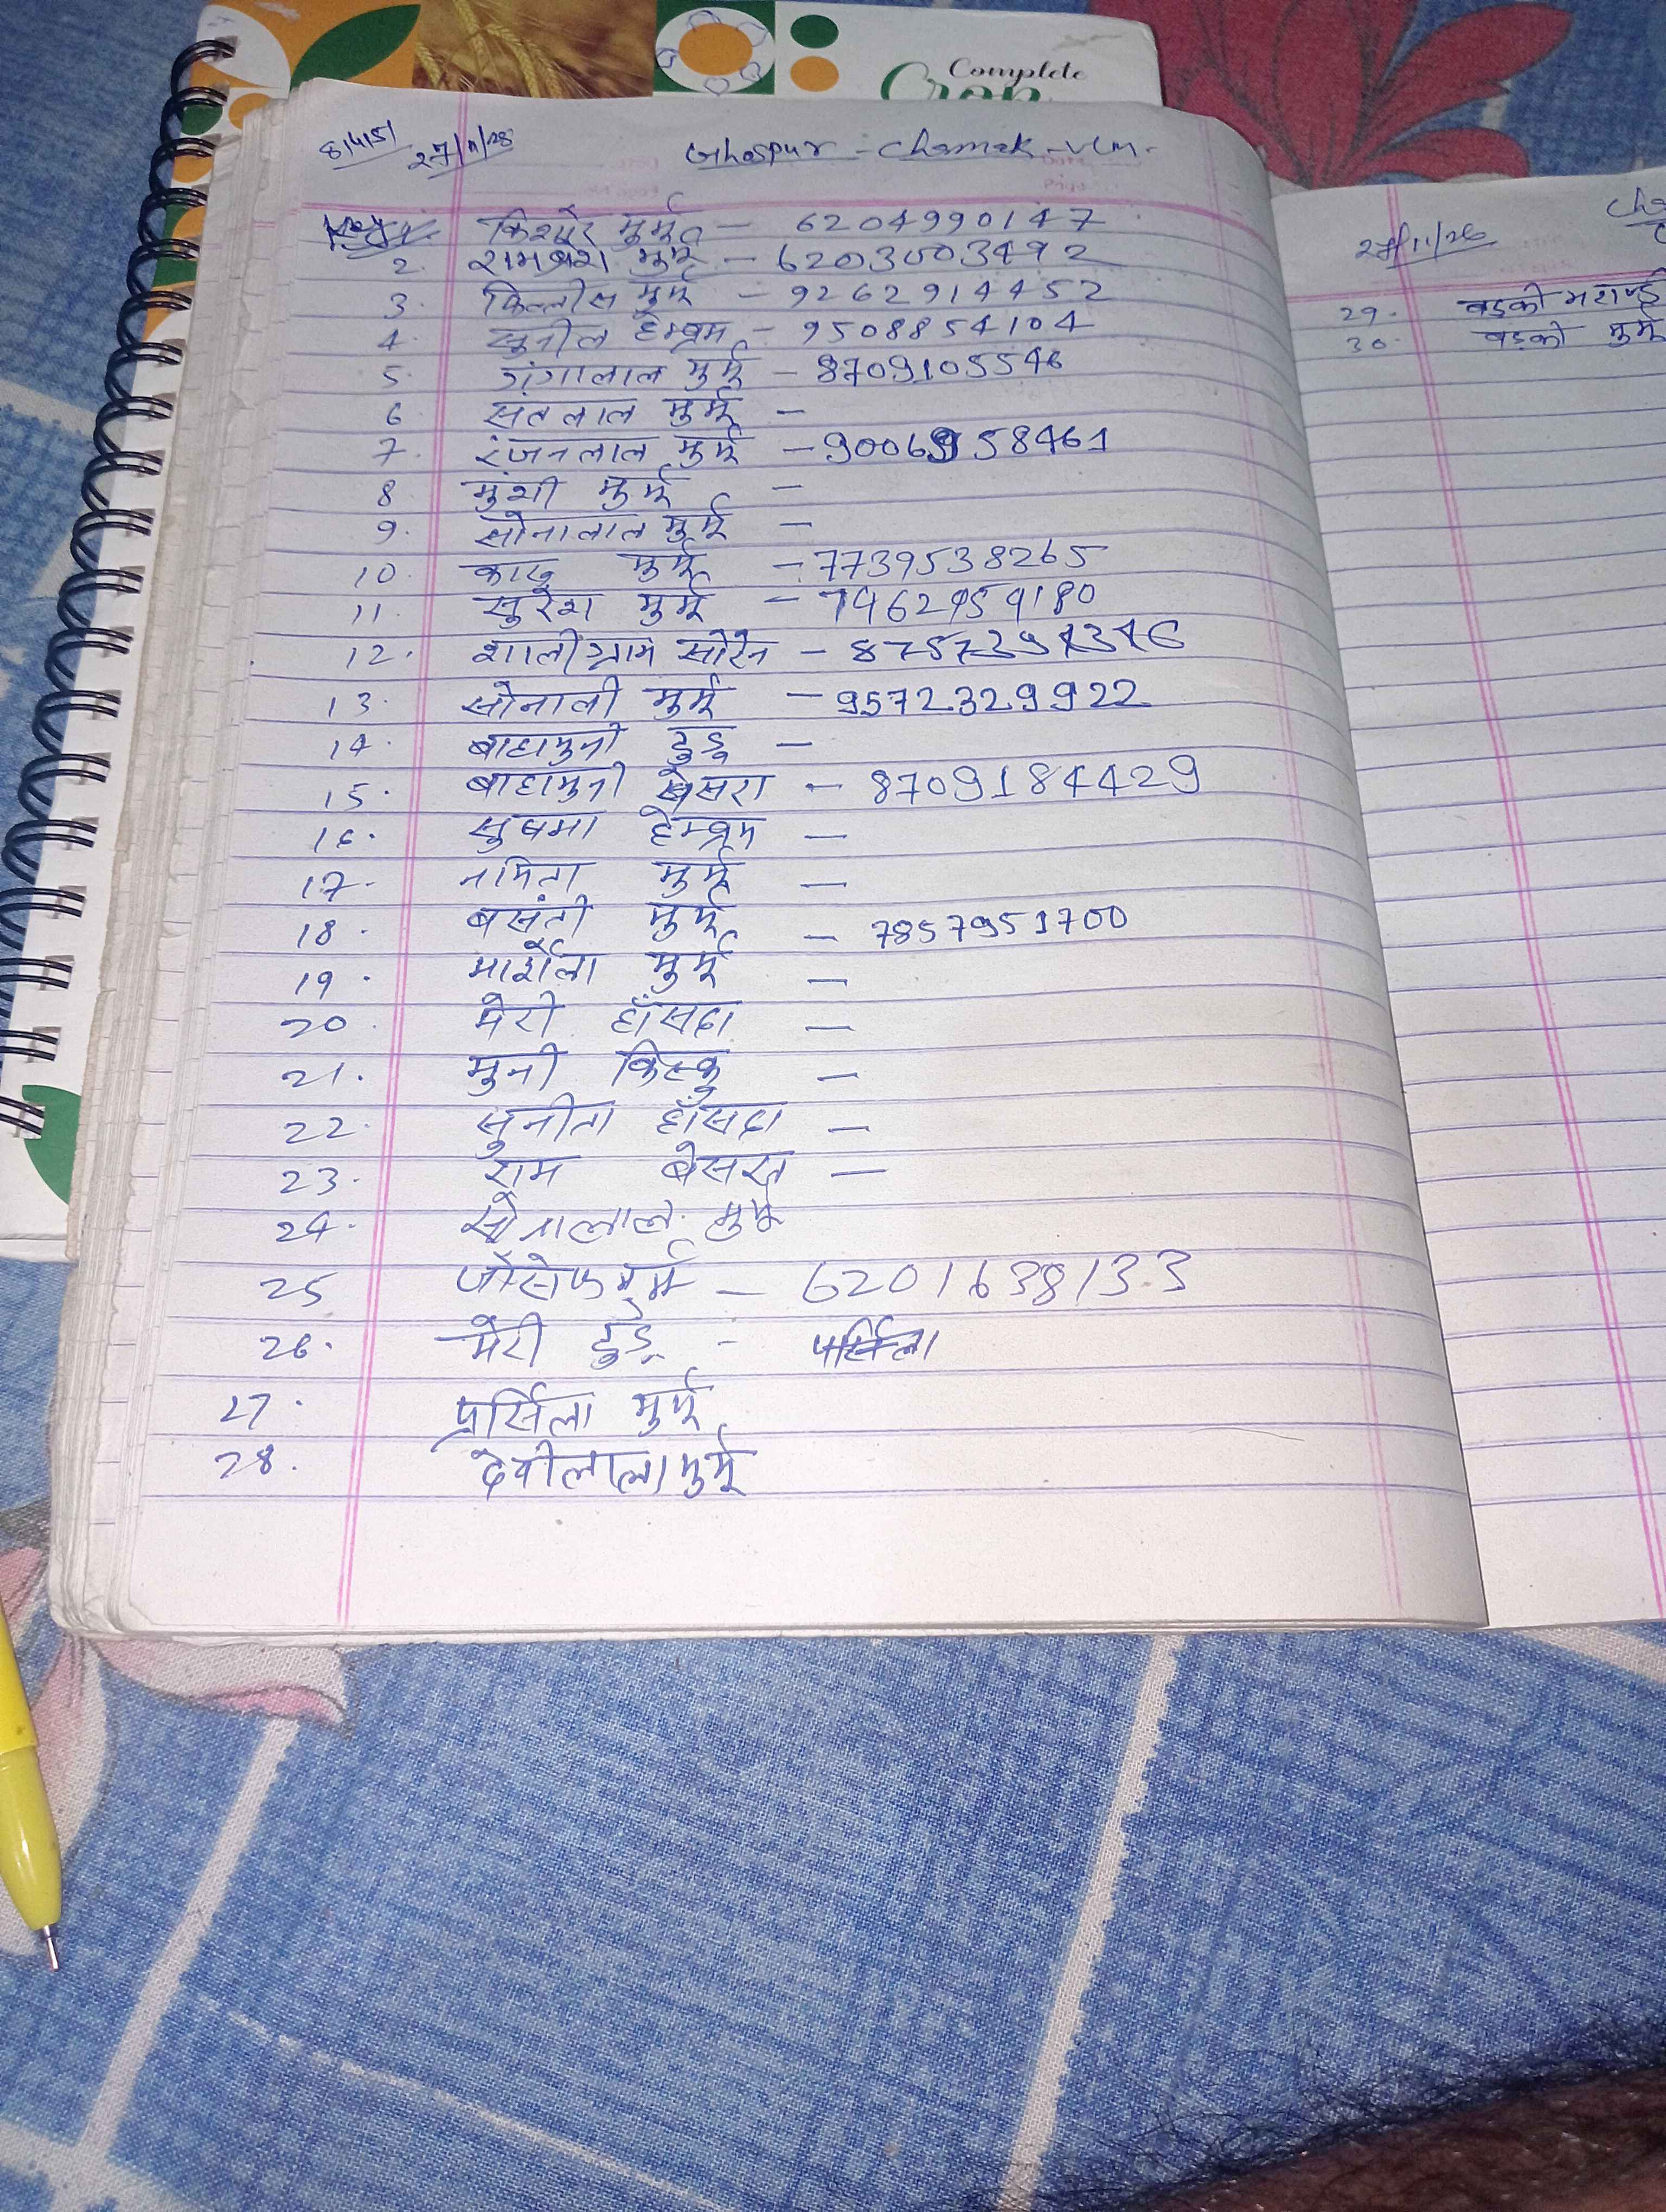 Complete
Crop
8/4/51 27/11/28 Ghospur - Chamak - VCM.
1. किशोर मुर्मू - 6204990147
2. रामबेश मुर्मू - 6203503492
3. फिल्लीस मुर्मू - 9262914452
4. सुनील हेम्ब्रम - 9508854104
5. गंगालाल मुर्मू - 8709105546
6. संतलाल मुर्मू -
7. रंजनलाल मुर्मू - 9006958461
8. मुंशी मुर्मू -
9. सोनालाल मुर्मू -
10. कालू मुर्मू - 7739538265
11. सुरेश मुर्मू - 7462954180
12. शालीग्राम सोरेन - 8757394346
13. सोनाली मुर्मू - 9572329922
14. बाहामुनी टुडू -
15. बाहामुनी बेसरा - 8709184429
16. सुषमा हेम्ब्रम -
17. नमिता मुर्मू -
18. बसंती मुर्मू - 7857951700
19. मार्शेला मुर्मू -
20. मेरी हाँसदा -
21. मुनी किस्कू -
22. सुनीता हाँसदा -
23. राम बेसरा -
24. सोनालाल मुर्मू
25 जोसेफ मुर्मू - 6201638133
26. मेरी टुडू -
27. प्रर्सिला मुर्मू
28. देवीलाल मुर्मू
27/11/26 Cha
29. बड़की मराण्डी
30. बड़की मुर्मू